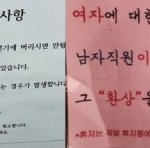 사항
기에 버리시면 안됩
있습니다.
는 경우가 발생합니다.
여자에 대한
남자직원이
그 "환상"을
※휴지는 제발 휴지통에